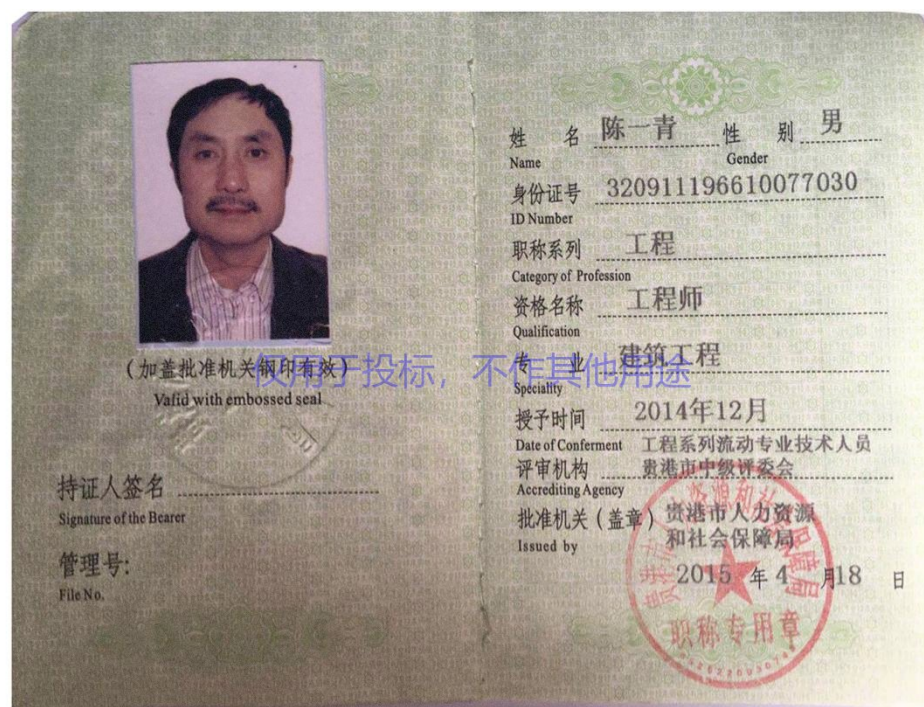 (加盖批准机关钢印有效)
Valid with embossed seal
持证人签名
Signature of the Bearer
管理号:
File No.
姓 名 陈一青 性 别 男
Name Gender
身份证号 320911196610077030
ID Number
职称系列 工程
Category of Profession
资格名称 工程师
Qualification
专 业 建筑工程
Speciality
授予时间 2014年12月
Date of Conferment 工程系列流动专业技术人员
评审机构 贵港市中级评委会
Accrediting Agency
批准机关(盖章) 贵港市人力资源
Issued by 和社会保障局
2015 年 4 月 18 日
贵港市人力资源和社会保障局
职称专用章
仅用于投标，不作其他用途